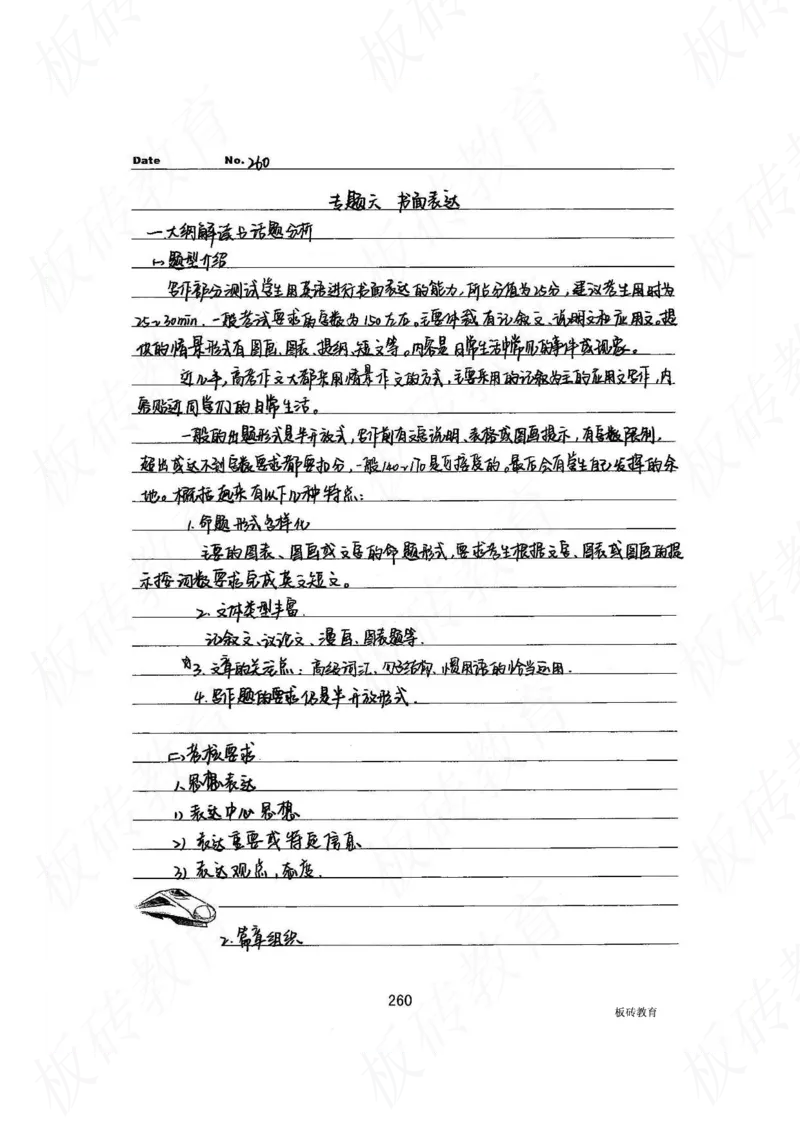 Date No. 260
专题六 书面表达
一、大纲解读与话题分析
(一)题型介绍
写作部分测试学生用英语进行书面表达的能力,所占分值为25分,建议考生用时为
25~30min.一般考试要求的字数为150左右。主要体裁有记叙文、说明文和应用文。提
供的情景形式有图画、图表、提纲、短文等。内容是日常生活中常见的事件或现象。
近几年,高考作文大都采用情景作文的方式,主要采用的记叙为主的应用文写作,内
容贴近同学们的日常生活。
一般的出题形式是半开放式,写作前有文字说明、表格或图画提示,有字数限制,
超出或达不到字数要求都要扣分,一般140~170是可接受的。最后会有学生自己发挥的余
地。概括起来有以下几种特点:
1.命题形式多样化
主要的图表、图画或文字的命题形式,要求考生根据文字、图表或图画的提
示按词数要求完成英文短文。
2.文体类型丰富
记叙文、议论文、漫画、图表题等.
3.文章的关亮点:高级词汇、句子结构、惯用语的恰当运用.
4.写作题的要求仍是半开放形式.
(二)考核要求
1.思想表达
1)表达中心思想
2)表达重要或特定信息
3)表达观点,态度.
2.篇章组织
260
板砖教育